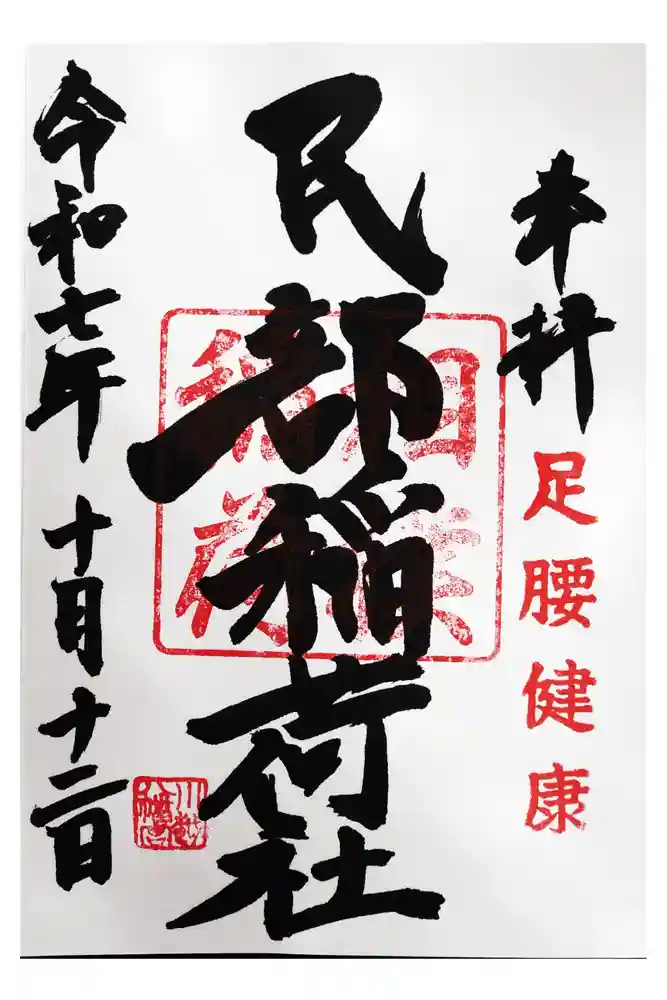 奉拝
足腰健康
民部稲荷社
令和七年十月十二日